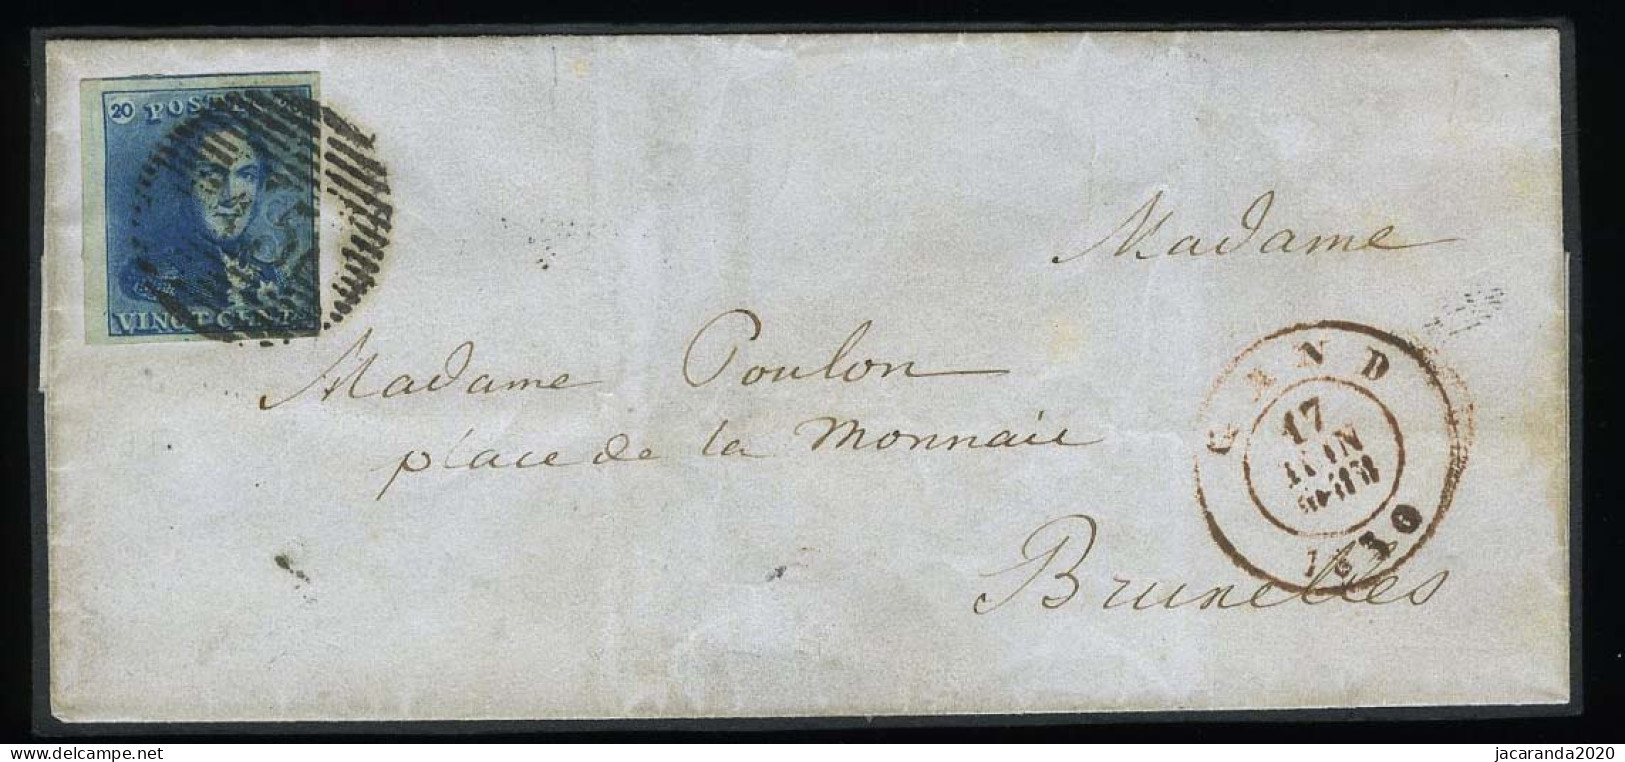 20 POSTE
VINGT CENT
Madame
Madame Poulon
place de la Monnaie
Bruxelles
GAND
17
JUIN
1850
www.delcampe.net
jacaranda2020